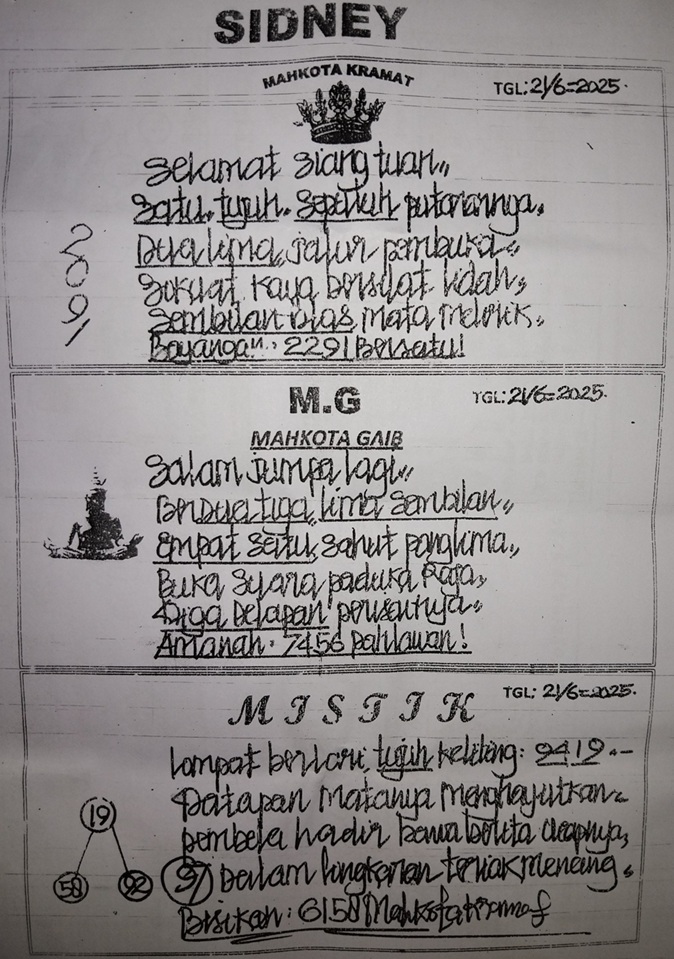 SIDNEY
MAHKOTA KRAMAT
TGL: 21/6=2025.
Selamat siang tuan,,
Satu. tujuh. Sepuluh putarannya,
Dua lima, jalur pembuka,,
Sekuat kaya bersilat lidah,
Sembilan blas, mata melirik,
Bayangan.. 2291 Bersatu!
2091
M.G
TGL: 21/6=2025.
MAHKOTA GAIB
Salam jumpa lagi,,
Berdua tiga, lima sembilan,,
Empat satu, sahut panglima,
Buka suara paduka Raja,
Tiga Delapan
Amanah. 7456 pahlawan!
MISTIK
TGL: 21/6=2025.
Lompat berlari, tujuh keliling: 9419
Tatapan matanya menghayutkan
pembela hadir bawa berita ucapnya,
Dalam lingkaran teriak menang,
Bisikan: 6158 Mahkota
19
58 92 37